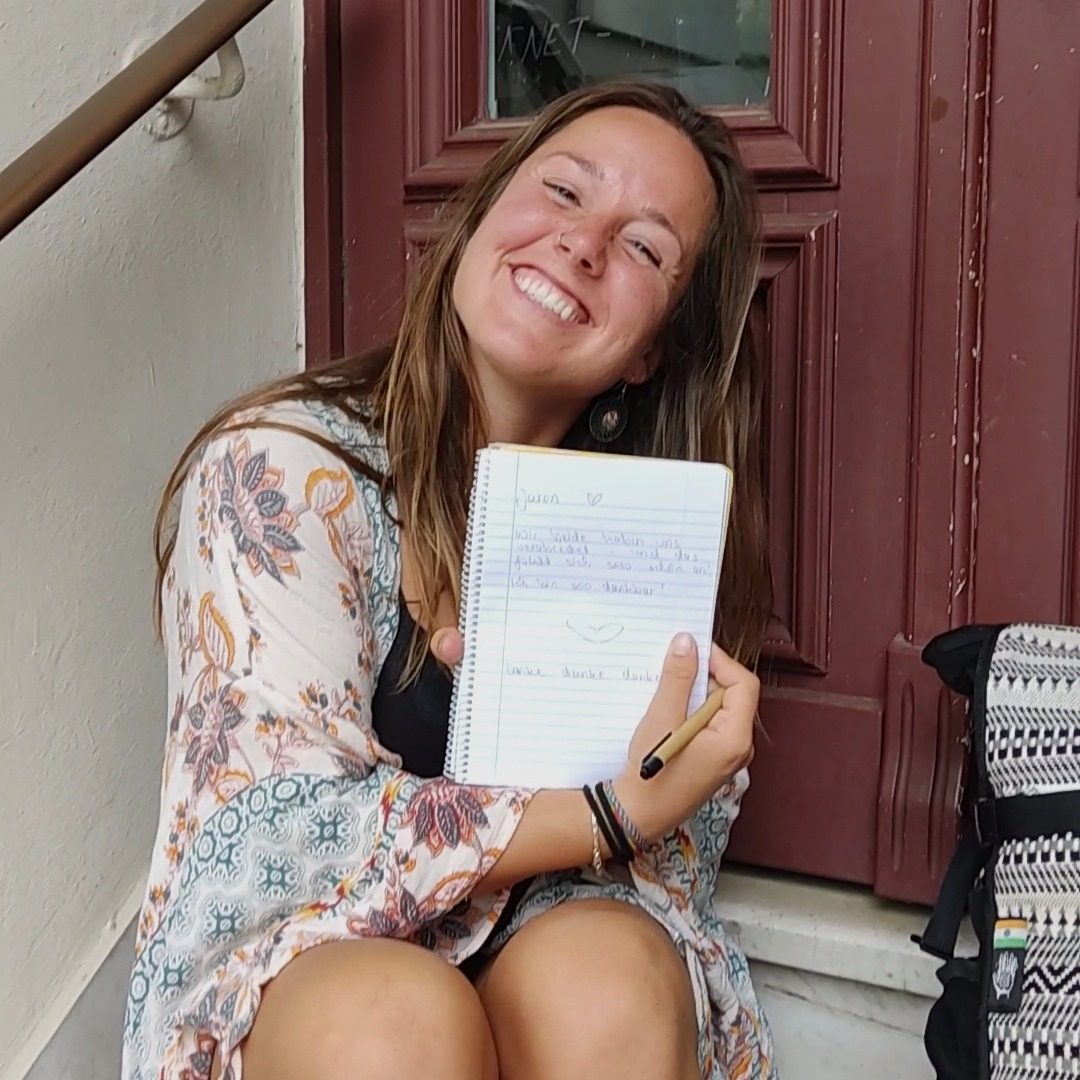 KNET-
Jaron ♡
Wir beide haben uns
verabredet und das
fühlt sich sooo schön an!
Ich bin soo dankbar!
danke danke danke